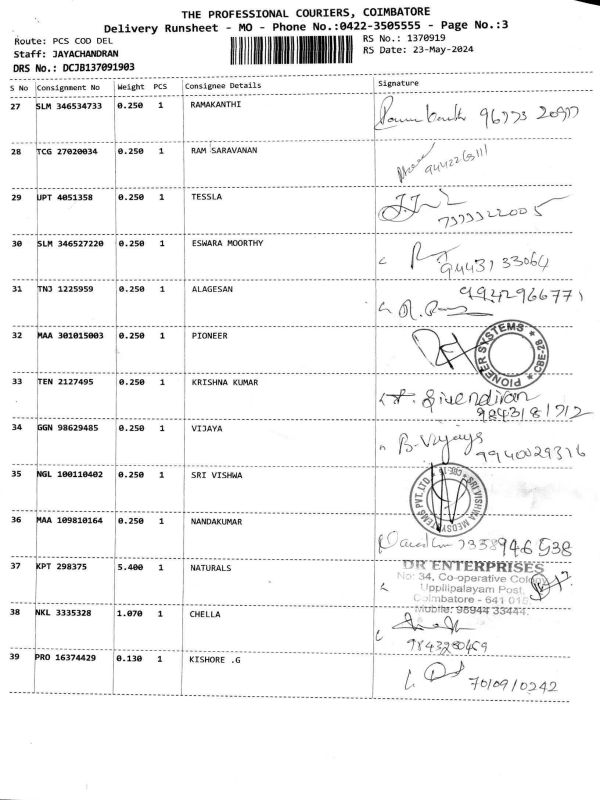 THE PROFESSIONAL COURIERS, COIMBATORE
Delivery Runsheet - MO - Phone No.:0422-3505555 - Page No.:3
Route: PCS COD DEL
RS No.: 1370919
Staff: JAYACHANDRAN
RS Date: 23-May-2024
DRS No.: DCJB137091903
S No Consignment No Weight PCS Consignee Details Signature
27 SLM 346534733 0.250 1 RAMAKANTHI
28 TCG 27020034 0.250 1 RAM SARAVANAN
29 UPT 4051358 0.250 1 TESSLA
7373322005
30 SLM 346527220 0.250 1 ESWARA MOORTHY
94431 33064
31 TNJ 1225959 0.250 1 ALAGESAN
9942966771
32 MAA 301015003 0.250 1 PIONEER
PIONEER SYSTEMS CBE-28
33 TEN 2127495 0.250 1 KRISHNA KUMAR
9843181712
34 GGN 98629485 0.250 1 VIJAYA
B. Vijaya
9940029316
35 NGL 100110402 0.250 1 SRI VISHWA
SRI VISHWA MEDSYSTEMS PVT. LTD.
36 MAA 109810164 0.250 1 NANDAKUMAR
37 KPT 298375 5.400 1 NATURALS
DR ENTERPRISES
No: 34, Co-operative Colony
Uppilipalayam Post,
Coimbatore - 641 015
Mobile: 98944 33444
38 NKL 3335328 1.070 1 CHELLA
39 PRO 16374429 0.130 1 KISHORE .G